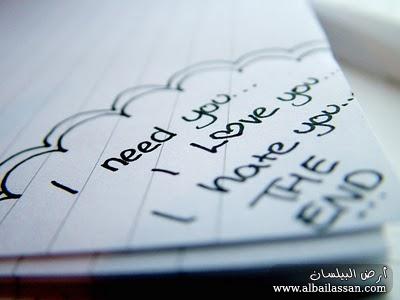 I need you....
I Love you...
I hate you...
THE
END...
أرض البيلسان
www.albailassan.com